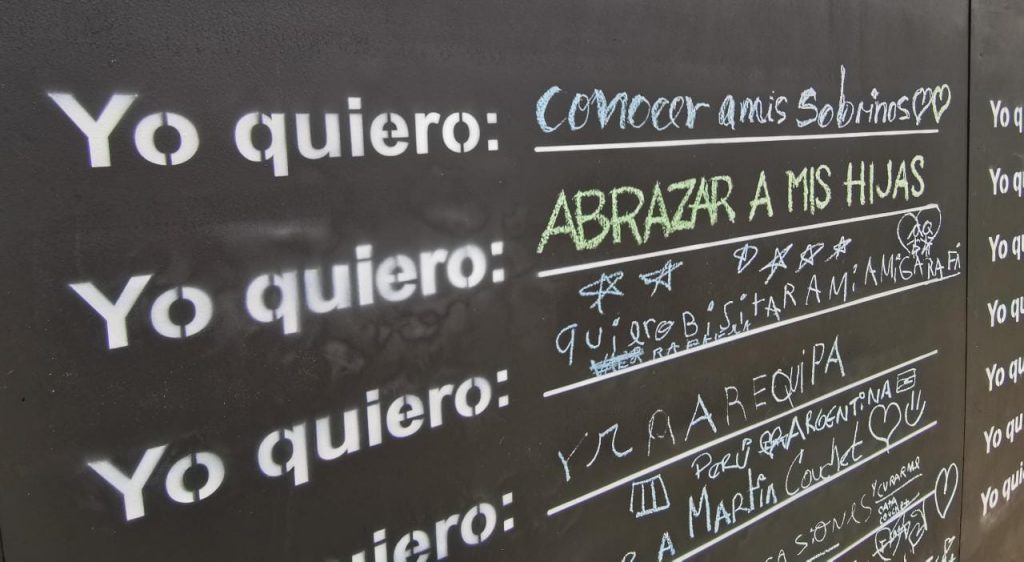 Yo quiero: conocer a mis sobrinos
Yo quiero: ABRAZAR A MIS HIJAS
Yo quiero: quiero BiSitAR A Mi AMiGA RAFA
Yo quiero: Yr A AREQUIPA
PERÚ ARGENTINA
A Martin Coudet
SIONES
Yo q
Yo qu
Yo qu
Yo qui
Yo qui
Yo qui
Yo qui